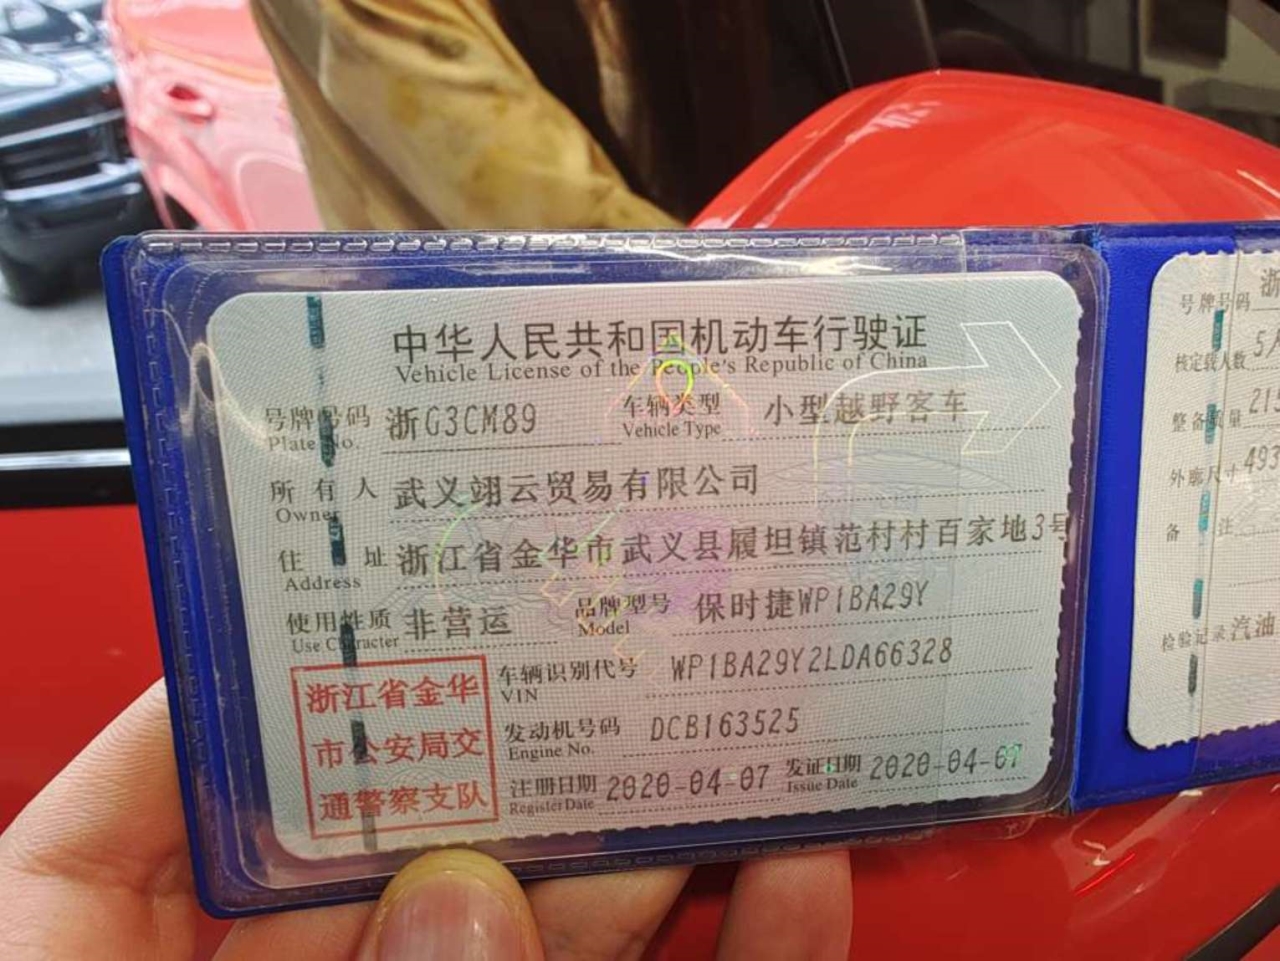 中华人民共和国机动车行驶证
Vehicle License of the People's Republic of China
号牌号码 浙G3CM89 车辆类型 小型越野客车
Plate No. Vehicle Type
所有人 武义翊云贸易有限公司
Owner
住址 浙江省金华市武义县履坦镇范村村百家地3号
Address
使用性质 非营运 品牌型号 保时捷WP1BA29Y
Use Character Model
浙江省金华
市公安局交
通警察支队
车辆识别代号 WP1BA29Y2LDA66328
VIN
发动机号码 DCB163525
Engine No.
注册日期 2020-04-07 发证日期 2020-04-07
Register Date Issue Date
号牌号码 浙
核定载人数 5人
整备质量 21
外廓尺寸 493
备注
检验记录 汽油